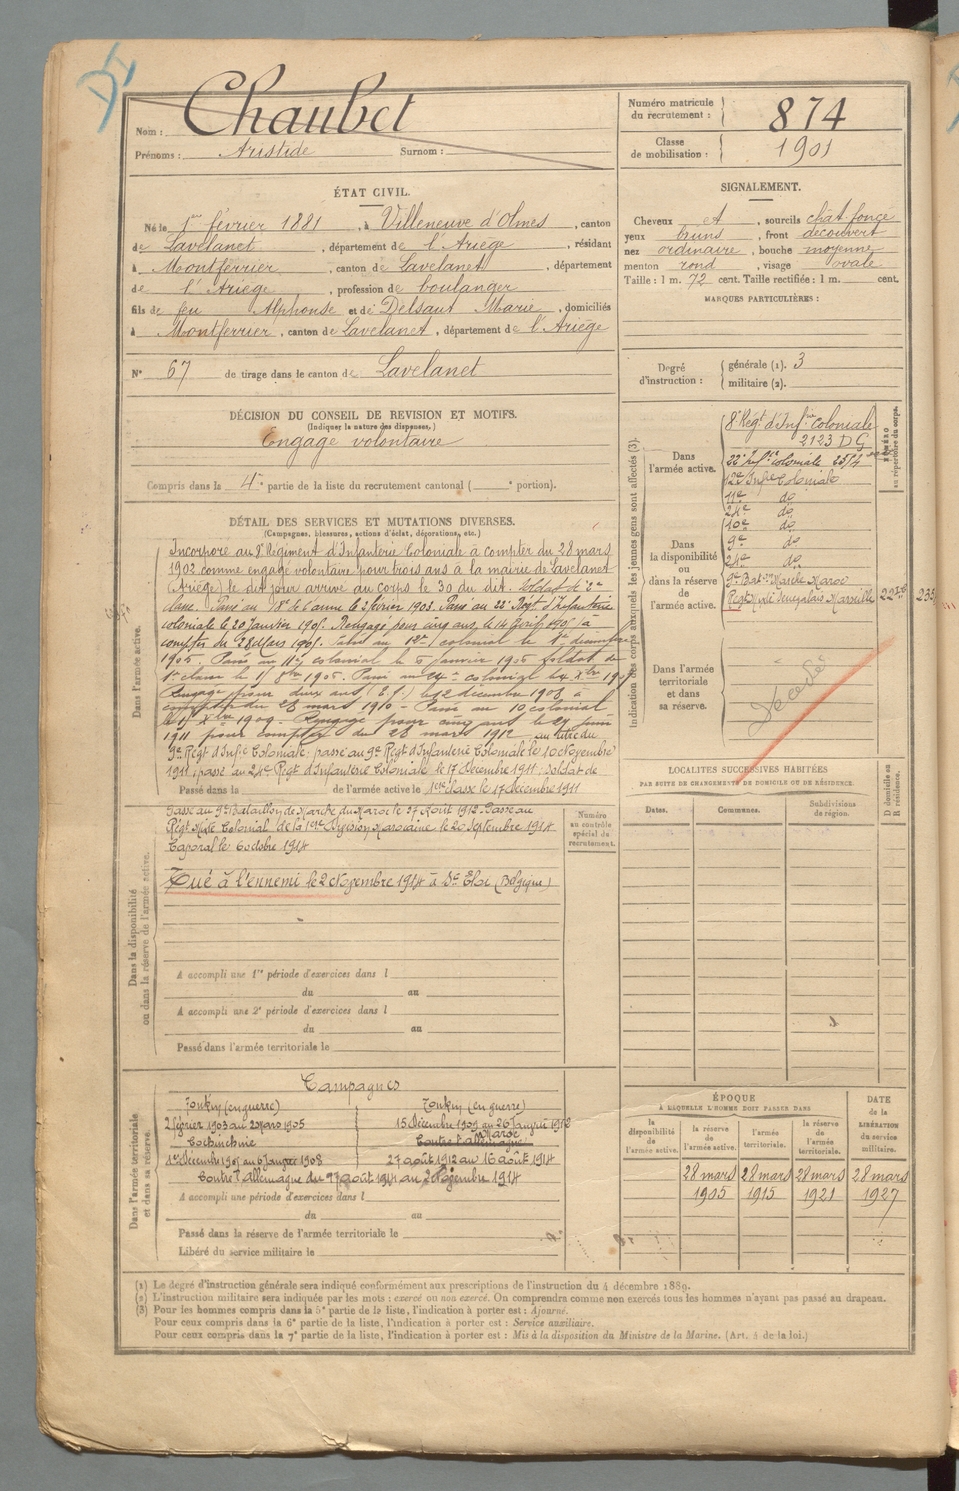 Nom : Chaubet
Prénoms : Aristide Surnom :
Numéro matricule du recrutement : 874
Classe de mobilisation : 1901
ÉTAT CIVIL.
Né le 1er février 1881, à Villeneuve d'Olmes, canton
de Lavelanet, département de l'Ariège, résidant
à Montferrier, canton de Lavelanet, département
de l'Ariège, profession de boulanger
fils de feu Alphonse et de Delsaut Marie, domiciliés
à Montferrier, canton de Lavelanet, département de l'Ariège
N° 67 de tirage dans le canton de Lavelanet
SIGNALEMENT.
Cheveux et, sourcils chât. foncé
yeux bruns, front découvert
nez ordinaire, bouche moyenne
menton rond, visage ovale
Taille : 1 m. 72 cent. Taille rectifiée : 1 m. cent.
MARQUES PARTICULIÈRES :
Degré d'instruction : générale (1). 3
militaire (2).
DÉCISION DU CONSEIL DE REVISION ET MOTIFS.
(Indiquer la nature des dispenses.)
Engagé volontaire
Compris dans la 4e partie de la liste du recrutement cantonal ( e portion).
DÉTAIL DES SERVICES ET MUTATIONS DIVERSES.
(Campagnes, blessures, actions d'éclat, décorations, etc.)
Dans l'armée active.
Incorporé au 8e Régiment d'Infanterie Coloniale à compter du 28 mars
1902 comme engagé volontaire pour trois ans à la mairie de Lavelanet
(Ariège) le dit jour arrivé au corps le 30 du dit. Soldat de 2e
classe. Passé au le 2 février 1903. Passé au 22e Régt d'Infanterie
coloniale le 20 Janvier 1905. Rengagé pour cinq ans, le 14 1905 à
compter du 28 Mars 1905. Passé au 12e colonial le 1er décembre
1905. Passé au 11e colonial le 6 janvier 1906 soldat de
1e classe le 1906. Passé au 24e colonial le
Rengagé pour deux ans le 12 décembre 1908 à
compter du 28 mars 1910 - Passé au 10 colonial
le 1909. Rengagé pour cinq ans le 24 juin
1911 pour compter du 28 mars 1912 au titre du
9e Régt d'Infie Coloniale; passé au 9e Régt d'Infanterie Coloniale le 10 Novembre
1911, passé au 24e Régt d'Infanterie Coloniale le 17 Décembre 1911; Soldat de
Passé dans la de l'armée active le 1ère classe le 17 décembre 1911
Dans la disponibilité ou dans la réserve de l'armée active.
Passé au 9e Bataillon de Marche du Maroc le 27 Août 1912. Passé au
Régt Mixte Colonial de la 1ère Division Marocaine le 20 Septembre 1914
Caporal le 6 octobre 1914
Tué à l'ennemi le 2 Novembre 1914 à St Eloi (Belgique)
A accompli une 1re période d'exercices dans l
du au
A accompli une 2e période d'exercices dans l
du au
Passé dans l'armée territoriale le
Numéro au contrôle spécial du recrutement.
Dans l'armée territoriale et dans sa réserve.
Campagnes
Tonkin (en guerre)
2 février 1903 au 20 Mars 1905
Cochinchine
1er Décembre 1905 au 6 Janvier 1908
Tonkin (en guerre)
15 Décembre 1909 au 26 Janvier 1912
Maroc
Contre l'allemagne
27 août 1912 au 16 août 1914
Contre l'allemagne du 17 août 1914 au 2 Novembre 1914
A accompli une période d'exercices dans l
du au
Passé dans la réserve de l'armée territoriale le
Libéré du service militaire le
Indication des corps auxquels les jeunes gens sont affectés (3).
NUMÉRO au répertoire du corps.
Dans l'armée active.
8e Régt d'Infrie Coloniale
2123 DG
22e Infrie coloniale 25/4
12e Infie Coloniale
11e do
24e do
10e do
9e do
24e do
Dans la disponibilité ou dans la réserve de l'armée active.
9e Baton Marche Maroc
Régt Mixte Sénégalais Marseille
Dans l'armée territoriale et dans sa réserve.
décédé
LOCALITÉS SUCCESSIVES HABITÉES
PAR SUITE DE CHANGEMENTS DE DOMICILE OU DE RÉSIDENCE.
Dates. Communes. Subdivisions de région. D domicile ou R résidence.
ÉPOQUE
À LAQUELLE L'HOMME DOIT PASSER DANS
la disponibilité de l'armée active.
la réserve de l'armée active.
l'armée territoriale.
la réserve de l'armée territoriale.
DATE de la LIBÉRATION du service militaire.
28 mars 28 mars 28 mars 28 mars
1905 1915 1921 1927
(1) Le degré d'instruction générale sera indiqué conformément aux prescriptions de l'instruction du 4 décembre 1889.
(2) L'instruction militaire sera indiquée par les mots : exercé ou non exercé. On comprendra comme non exercés tous les hommes n'ayant pas passé au drapeau.
(3) Pour les hommes compris dans la 5e partie de la liste, l'indication à porter est : Ajourné.
Pour ceux compris dans la 6e partie de la liste, l'indication à porter est : Service auxiliaire.
Pour ceux compris dans la 7e partie de la liste, l'indication à porter est : Mis à la disposition du Ministre de la Marine. (Art. 4 de la loi.)